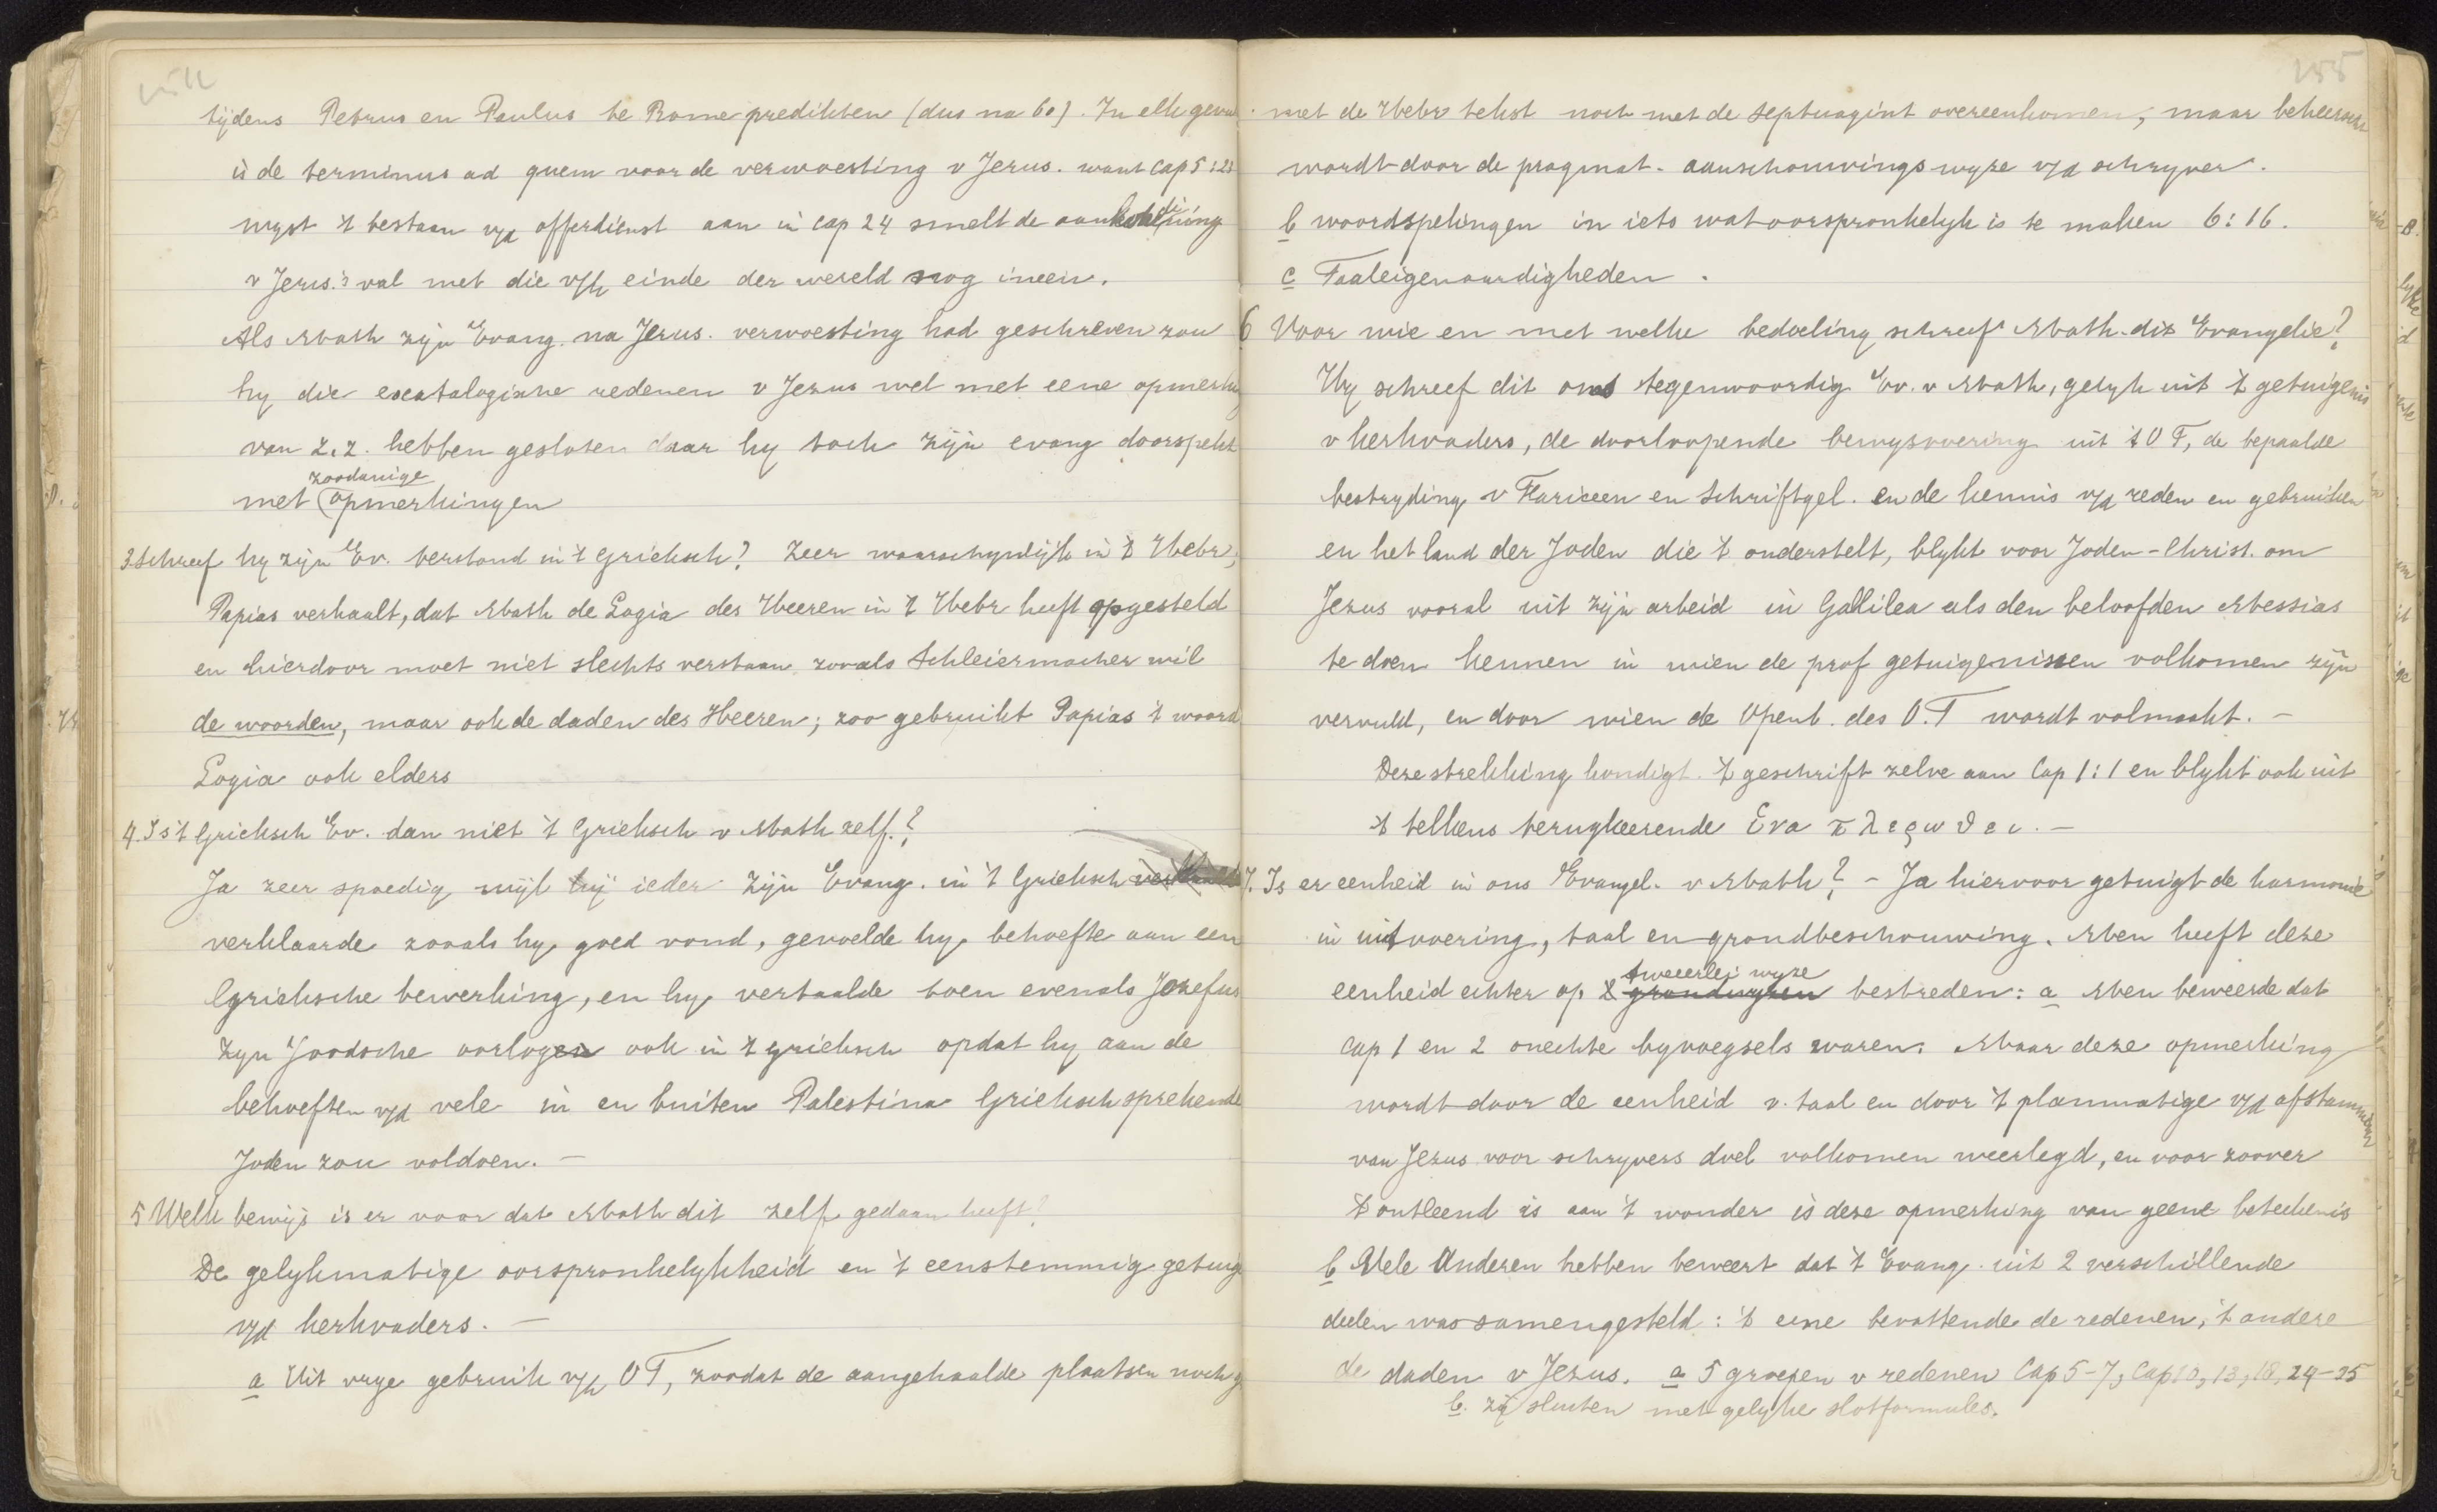 154
tijdens Petrus en Paulus te Rome predikten (dus na 60). In elk geval
is de terminus ad quem voor de verwoesting v Jerus. want Cap 5:23
wyst 't bestaan v/d offerdienst aan in Cap 24 smelt de aankondiging
v Jerus.'s val met die v/h einde der wereld nog ineen.
Als Math zijn Evang. na Jerus. verwoesting had geschreven zou
hy die escatalogische redenen v Jezus wel met eene opmerking
van z.z. hebben gesloten daar hy toch zijn evang doorspekt
zoodanige
met opmerkingen
3. Schreef hy zijn Ev. terstond in 't Grieksch? Zeer waarschynlijk in 't Hebr,
Papias verhaalt, dat Math de Logia des Heeren in 't Hebr heeft opgesteld
en hierdoor moet niet slechts verstaan zooals Schleiermacher wil
de woorden, maar ook de daden des Heeren; zoo gebruikt Papias 't woord
Logia ook elders
4. Is 't Grieksch Ev. dan niet 't Grieksch v Math zelf.?
Ja zeer spoedig wijl hij ieder zijn Evang. in 't Grieksch vertaalde
verklaarde zooals hy goed vond, gevoelde hy behoefte aan een
Grieksche bewerking, en hy vertaalde toen evenals Jozefus
zyn Joodsche oorlogen ook in 't grieksch opdat hy aan de
behoeften v/d vele in en buiten Palestina Grieksch sprekende
Joden zou voldoen. —
5 Welk bewijs is er voor dat Math dit zelf gedaan heeft?
De gelykmatige oorspronkelykheid en 't eenstemmig getuig
v/d kerkvaders. —
a Uit vrye gebruik v/h OT, zoodat de aangehaalde plaatsen noch
155
met de Hebr tekst noch met de Septuagint overeenkomen, maar beheerscht
wordt door de pragmat. aanschouwings wyze v/d schryver.
b woordspelingen in iets wat oorspronkelyk is te maken 6:16.
c Taaleigenaardigheden.
6 Voor wie en met welke bedoeling schreef Math. dit Evangelie?
Hy schreef dit ons tegenwoordig Ev. v Math, gelyk uit 't getuigenis
v kerkvaders, de doorloopende bewysvoering uit 't O T, de bepaalde
bestryding v Fariceen en Schriftgel. en de kennis v/d zeden en gebruiken
en het land der Joden die 't onderstelt, blykt voor Joden-Christ. om
Jezus vooral uit zijn arbeid in Gallilea als den beloofden Messias
te doen kennen in wien de prof getuigenissen volkomen zijn
vervuld, en door wien de Openb. des O.T wordt volmaakt. —
Deze strekking kondigt 't geschrift zelve aan Cap 1:1 en blykt ook uit
't telkens terugkeerende Eva πλερωθει. —
7. Is er eenheid in ons Evangel. v Math? – Ja hiervoor getuigt de harmonie
in uitvoering, taal en grondbeschouwing. Men heeft deze
tweeerlei wyze
eenheid echter op 2 grondwyzen bestreden: a Men beweerde dat
Cap 1 en 2 onechte byvoegsels waren. Maar deze opmerking
wordt door de eenheid v. taal en door 't planmatige v/d afstamming
van Jezus voor schryvers doel volkomen weerlegd, en voor zoover
't ontleend is aan 't wonder is deze opmerking van geene beteekenis
b Vele Anderen hebben beweert dat 't Evang. uit 2 verschillende
deelen was samengesteld: 't eene bevattende de redenen, 't andere
de daden v Jezus. a 5 groepen v redenen Cap 5-7, Cap 10, 13, 18, 24-25
b. zij sluiten met gelyke slotformules.